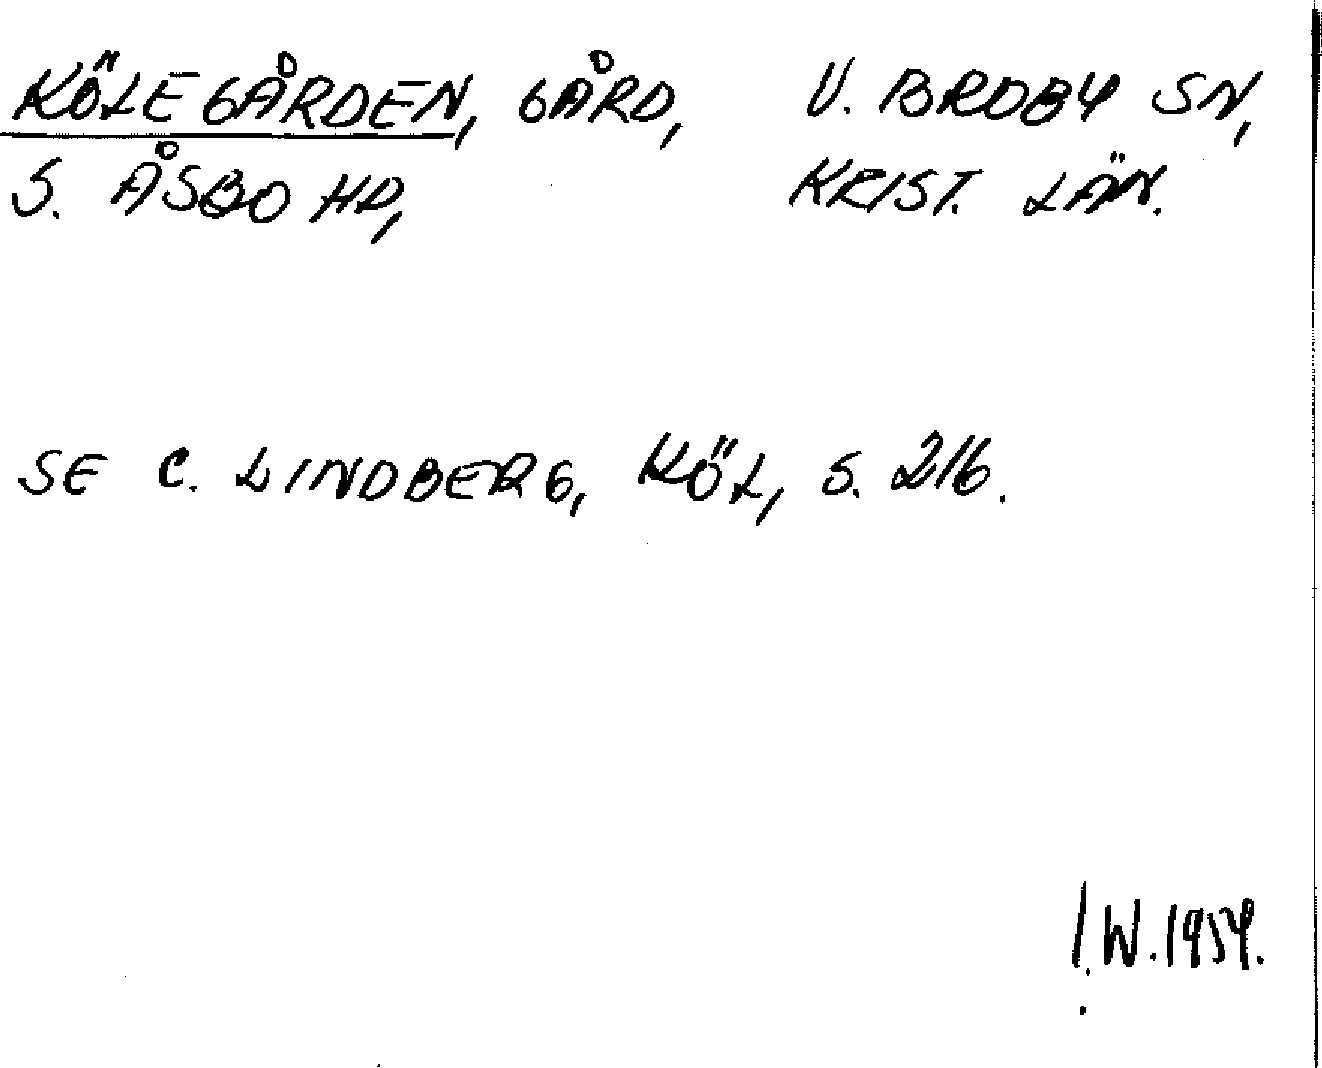 KÖLEGÅRDEN, GÅRD, V. BROBY SN,
S. ÅSBO HD, KRIST. LÄN.
SE C. LINDBERG, KÖL, S. 216.
I.W. 1954.